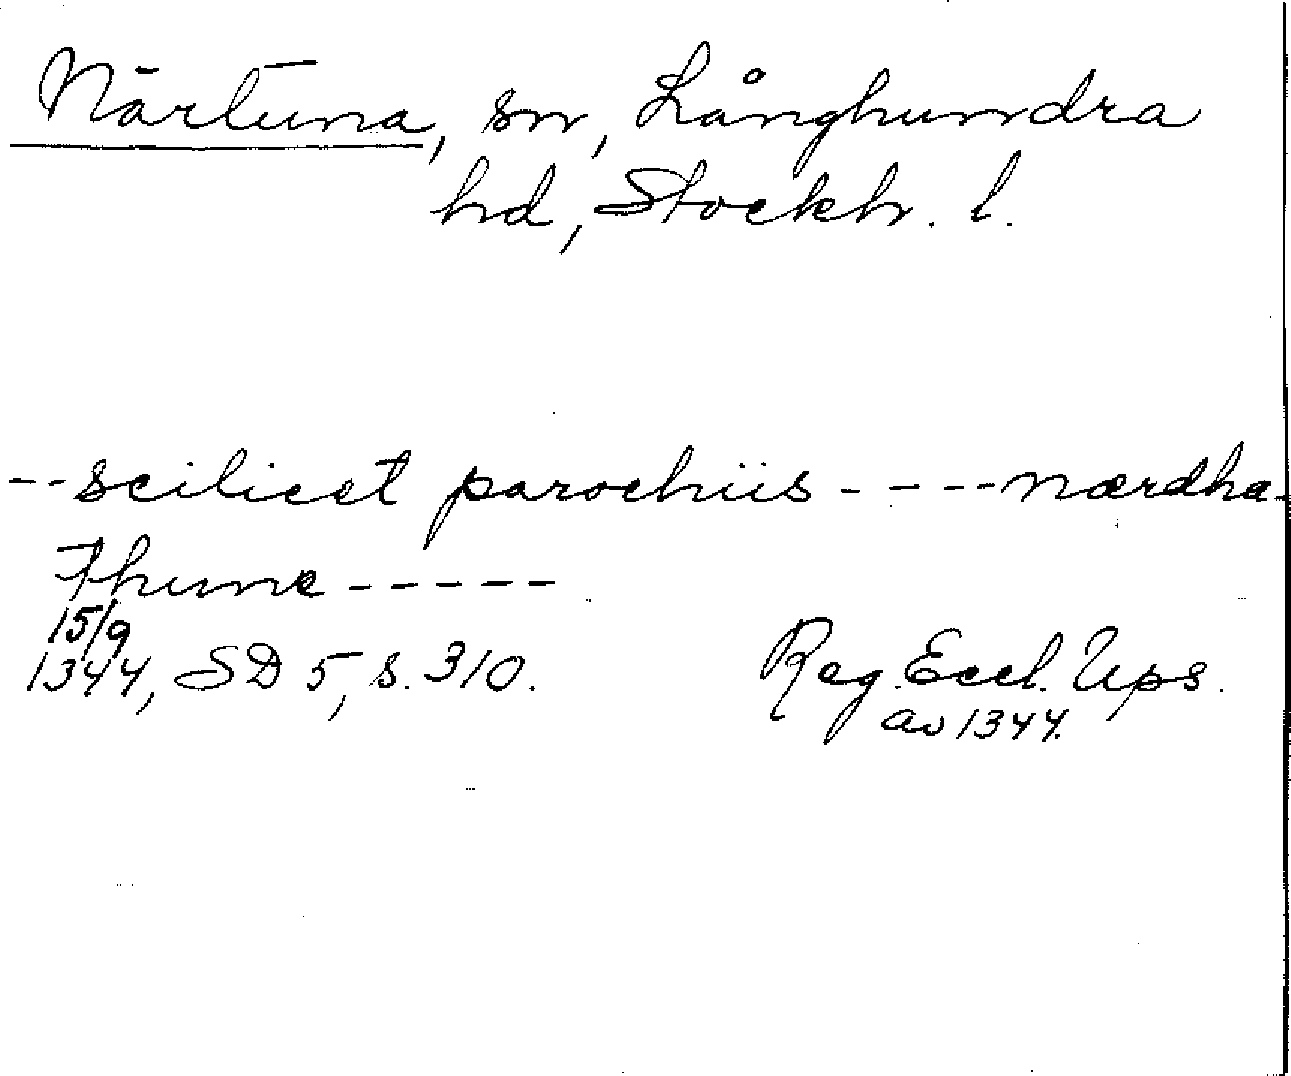 Närtuna, sn, Långhundra
hd, Stockh. l.
--scilicet parochiis ----nærdha-
thune-----
15/9
1344, SD 5, s. 310.
Reg. Eccl. Ups.
av 1344.